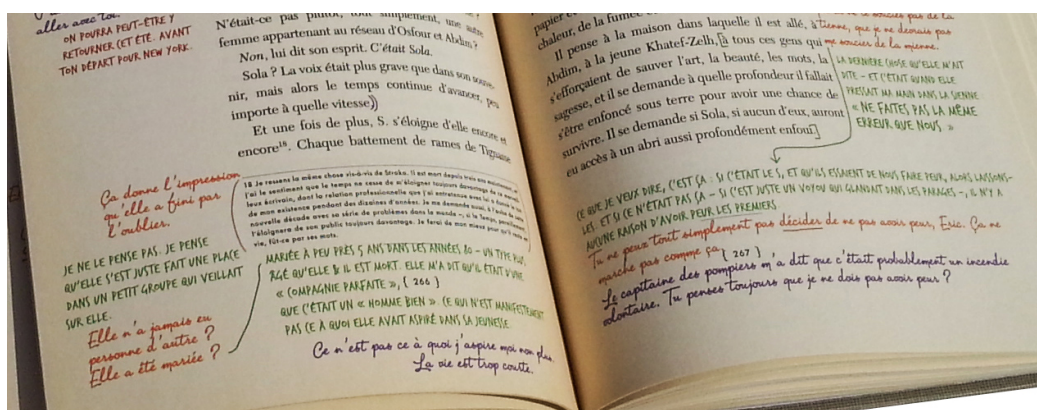 aller avec toi.
ON POURRA PEUT-ÊTRE Y
RETOURNER CET ÉTÉ. AVANT
TON DÉPART POUR NEW YORK.
N'était-ce pas plutôt, tout simplement, une autre
femme appartenant au réseau d'Osfour et Abdim ?
Non, lui dit son esprit. C'était Sola.
Sola ? La voix était plus grave que dans son souve-
nir, mais alors le temps continue d'avancer, peu
importe à quelle vitesse)
Et une fois de plus, S. s'éloigne d'elle encore et
encore¹⁸. Chaque battement de rames de Tignasse
Ça donne l'impression
qu'elle a fini par
l'oublier.
18 Je ressens la même chose vis-à-vis de Straka. Il est mort depuis trois ans maintenant, et
j'ai le sentiment que le temps ne cesse de m'éloigner toujours davantage de
tous écrivain, dont la relation professionnelle que j'ai entretenue avec lui a
de mon existence pendant des dizaines d'années. Je me demande aussi, à l'aube de cette
nouvelle décade avec sa série de problèmes dans le monde –, si le Temps
l'éloignera de son public toujours davantage. Je ferai de mon mieux pour qu'il reste en
vie, fût-ce par ses mots.
JE NE LE PENSE PAS. JE PENSE
QU'ELLE S'EST JUSTE FAIT UNE PLACE
DANS UN PETIT GROUPE QUI VEILLAIT
SUR ELLE.
Elle n'a jamais eu
personne d'autre ?
Elle a été mariée ?
MARIÉE À PEU PRÈS 5 ANS DANS LES ANNÉES 80 – UN TYPE PLUS
ÂGÉ QU'ELLE & IL EST MORT. ELLE M'A DIT QU'IL ÉTAIT D'UNE
« COMPAGNIE PARFAITE »,
{ 266 }
QUE C'ÉTAIT UN « HOMME BIEN ». CE QUI N'EST MANIFESTEMENT
PAS CE À QUOI ELLE AVAIT ASPIRÉ DANS SA JEUNESSE.
Ce n'est pas ce à quoi j'aspire moi non plus.
La vie est trop courte.
papier et
chaleur, de la fumée
Il pense à la maison dans laquelle il est allé, à
Abdim, à la jeune Khatef-Zelh, [à tous ces gens qui
s'efforçaient de sauver l'art, la beauté, les mots, la
sagesse, et il se demande à quelle profondeur il fallait
s'être enfoncé sous terre pour avoir une chance de
survivre. Il se demande si Sola, si aucun d'eux, auront
eu accès à un abri aussi profondément enfoui]
soucies pas de ta
tienne, que je ne devrais pas
me soucier de la mienne.
LA DERNIÈRE CHOSE QU'ELLE M'AIT
DITE – ET C'ÉTAIT QUAND ELLE
PRESSAIT MA MAIN DANS LA SIENNE
« NE FAITES PAS LA MÊME
ERREUR QUE NOUS »
CE QUE JE VEUX DIRE, C'EST ÇA : SI C'ÉTAIT LE S, ET QU'ILS ESSAIENT DE NOUS FAIRE PEUR, ALORS LAISSONS-
LES. ET SI CE N'ÉTAIT PAS ÇA – SI C'EST JUSTE UN VOYOU QUI GLANDAIT DANS LES PARAGES –, IL N'Y A
AUCUNE RAISON D'AVOIR PEUR LES PREMIERS.
Tu ne peux tout simplement pas décider de ne pas avoir peur, Eric. Ça ne
marche pas comme ça
{ 267 }
Le capitaine des pompiers m'a dit que c'était probablement un incendie
volontaire. Tu penses toujours que je ne dois pas avoir peur ?